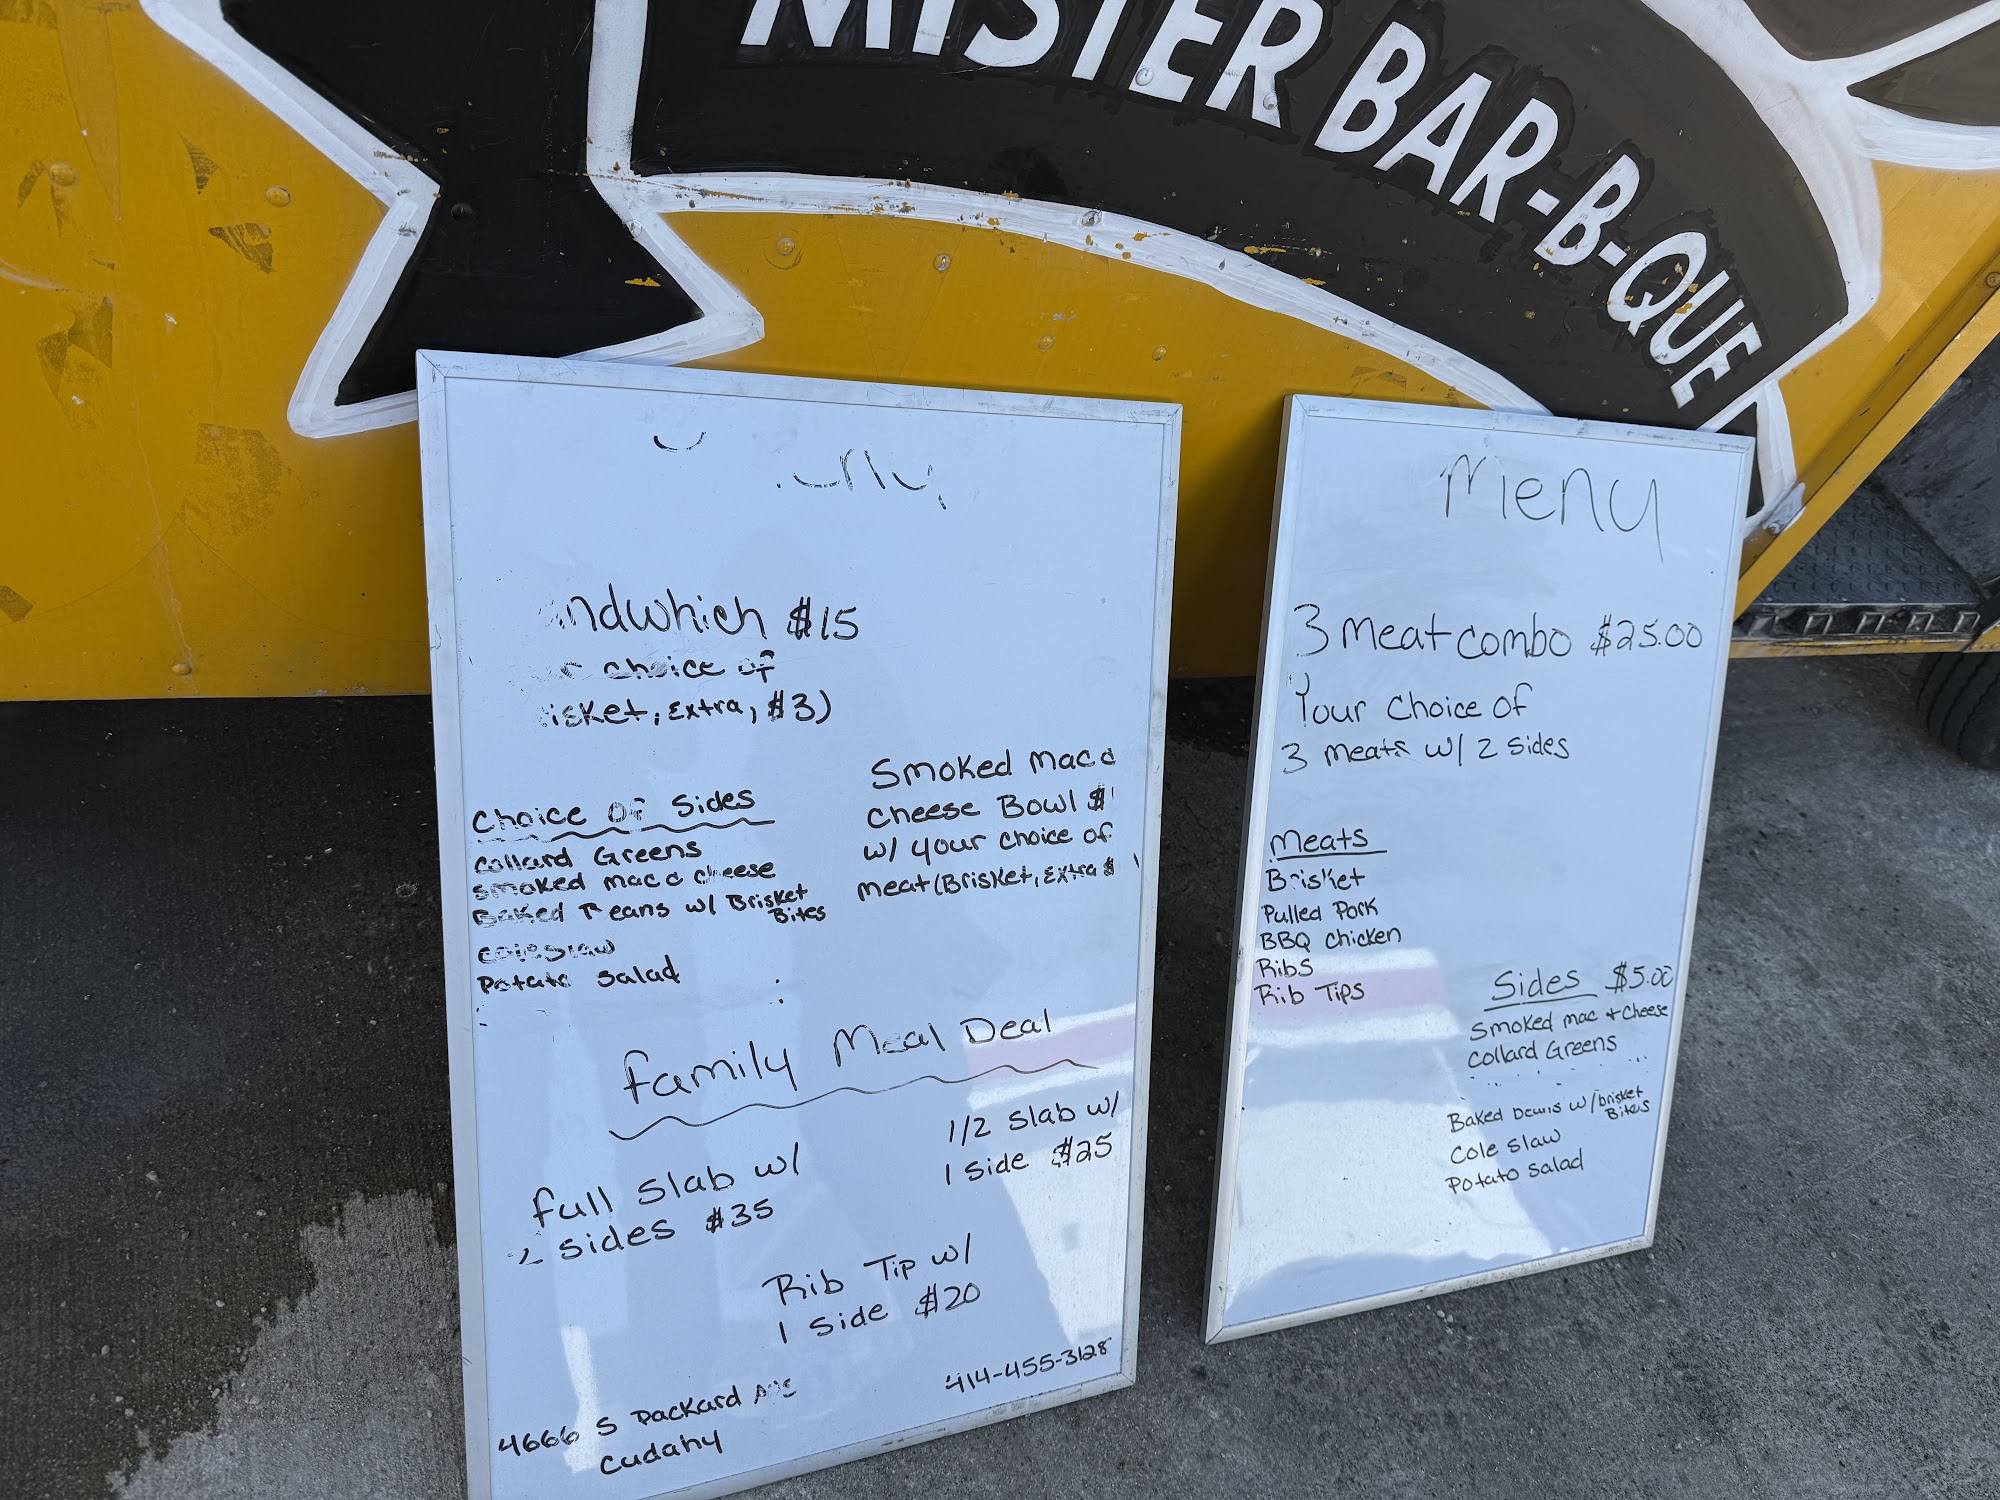 MISTER BAR-B-QUE
ndwhich $15
choice of
isket, Extra, $3)
Choice of Sides
Collard Greens
Smoked mac c cheese
Baked Beans w/ Brisket
Bites
coleslaw
Potato Salad
Smoked mac c
cheese Bowl $
w/ your choice of
meat (Brisket, Extra $
Family Meal Deal
Full Slab w/
2 sides $35
1/2 Slab w/
1 side $25
Rib Tip w/
1 Side $20
4666 S Packard Ave
Cudahy
414-455-3128
Menu
3 meat combo $25.00
Your Choice of
3 meats w/ 2 sides
Meats
Brisket
Pulled Pork
BBQ Chicken
Ribs
Rib Tips
Sides $5.00
Smoked mac + Cheese
Collard Greens
Baked w/ brisket
Bites
Cole Slaw
Potato Salad